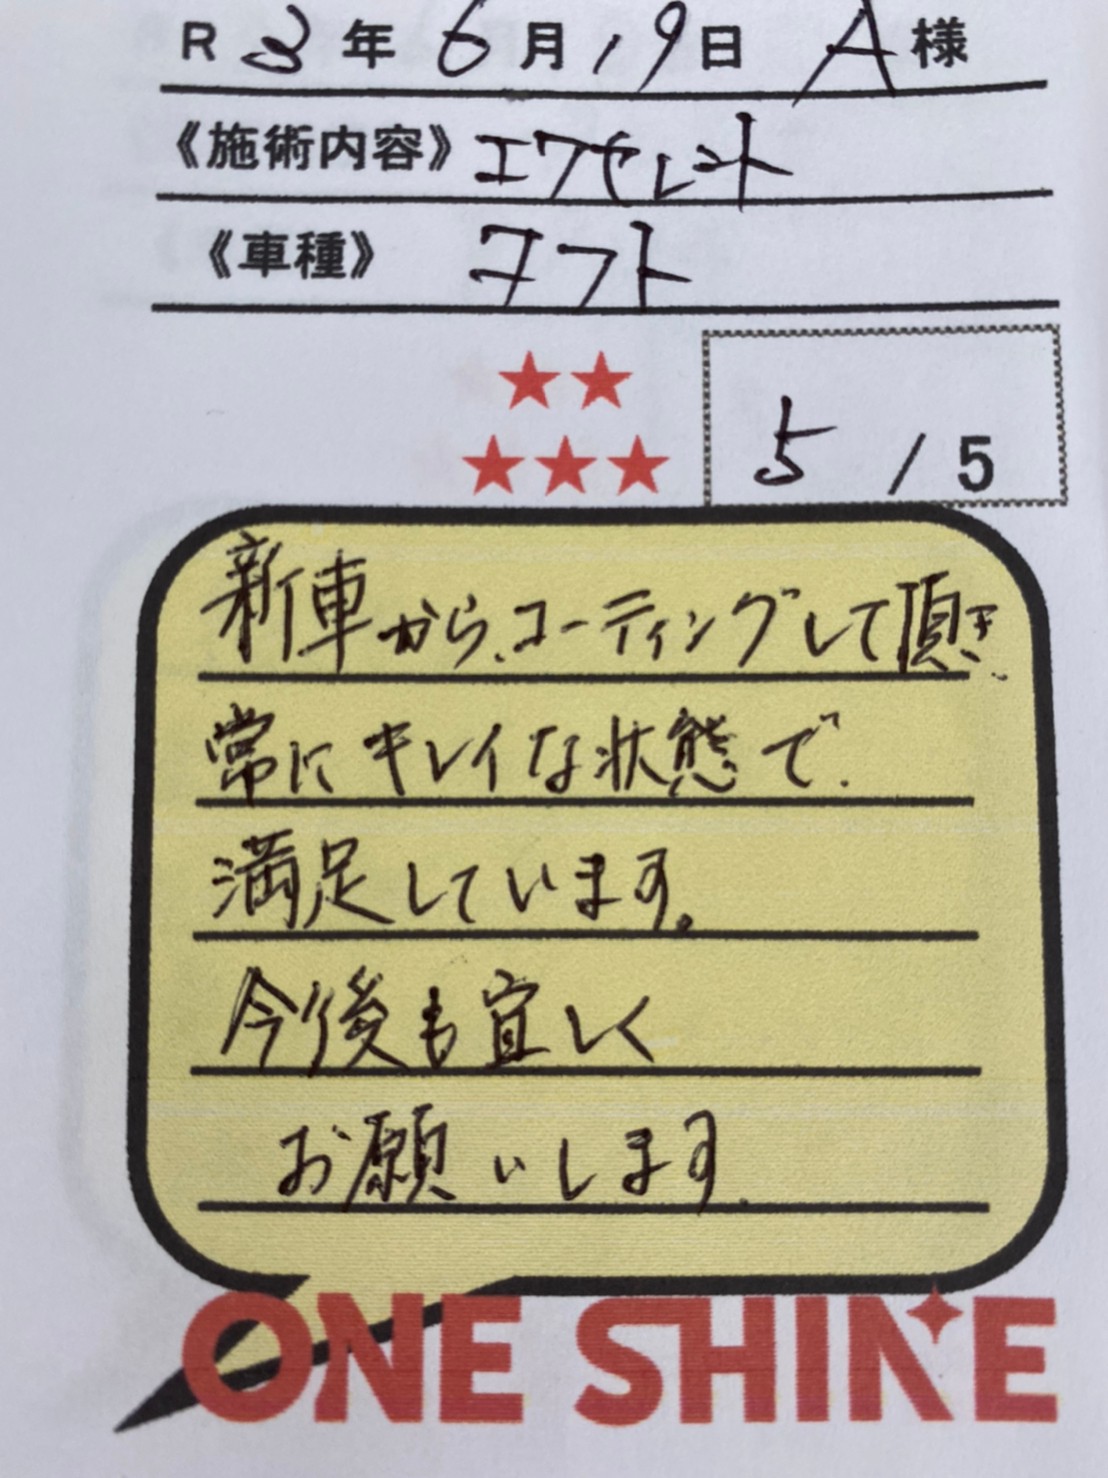 R 3 年 6 月 19 日 A 様
《施術内容》エクセレント
《車種》 タフト
★★
★★★
5 / 5
新車から、コーティングして頂き、
常にキレイな状態で、
満足しています。
今後も宜しく
お願いします。
ONE SHINE